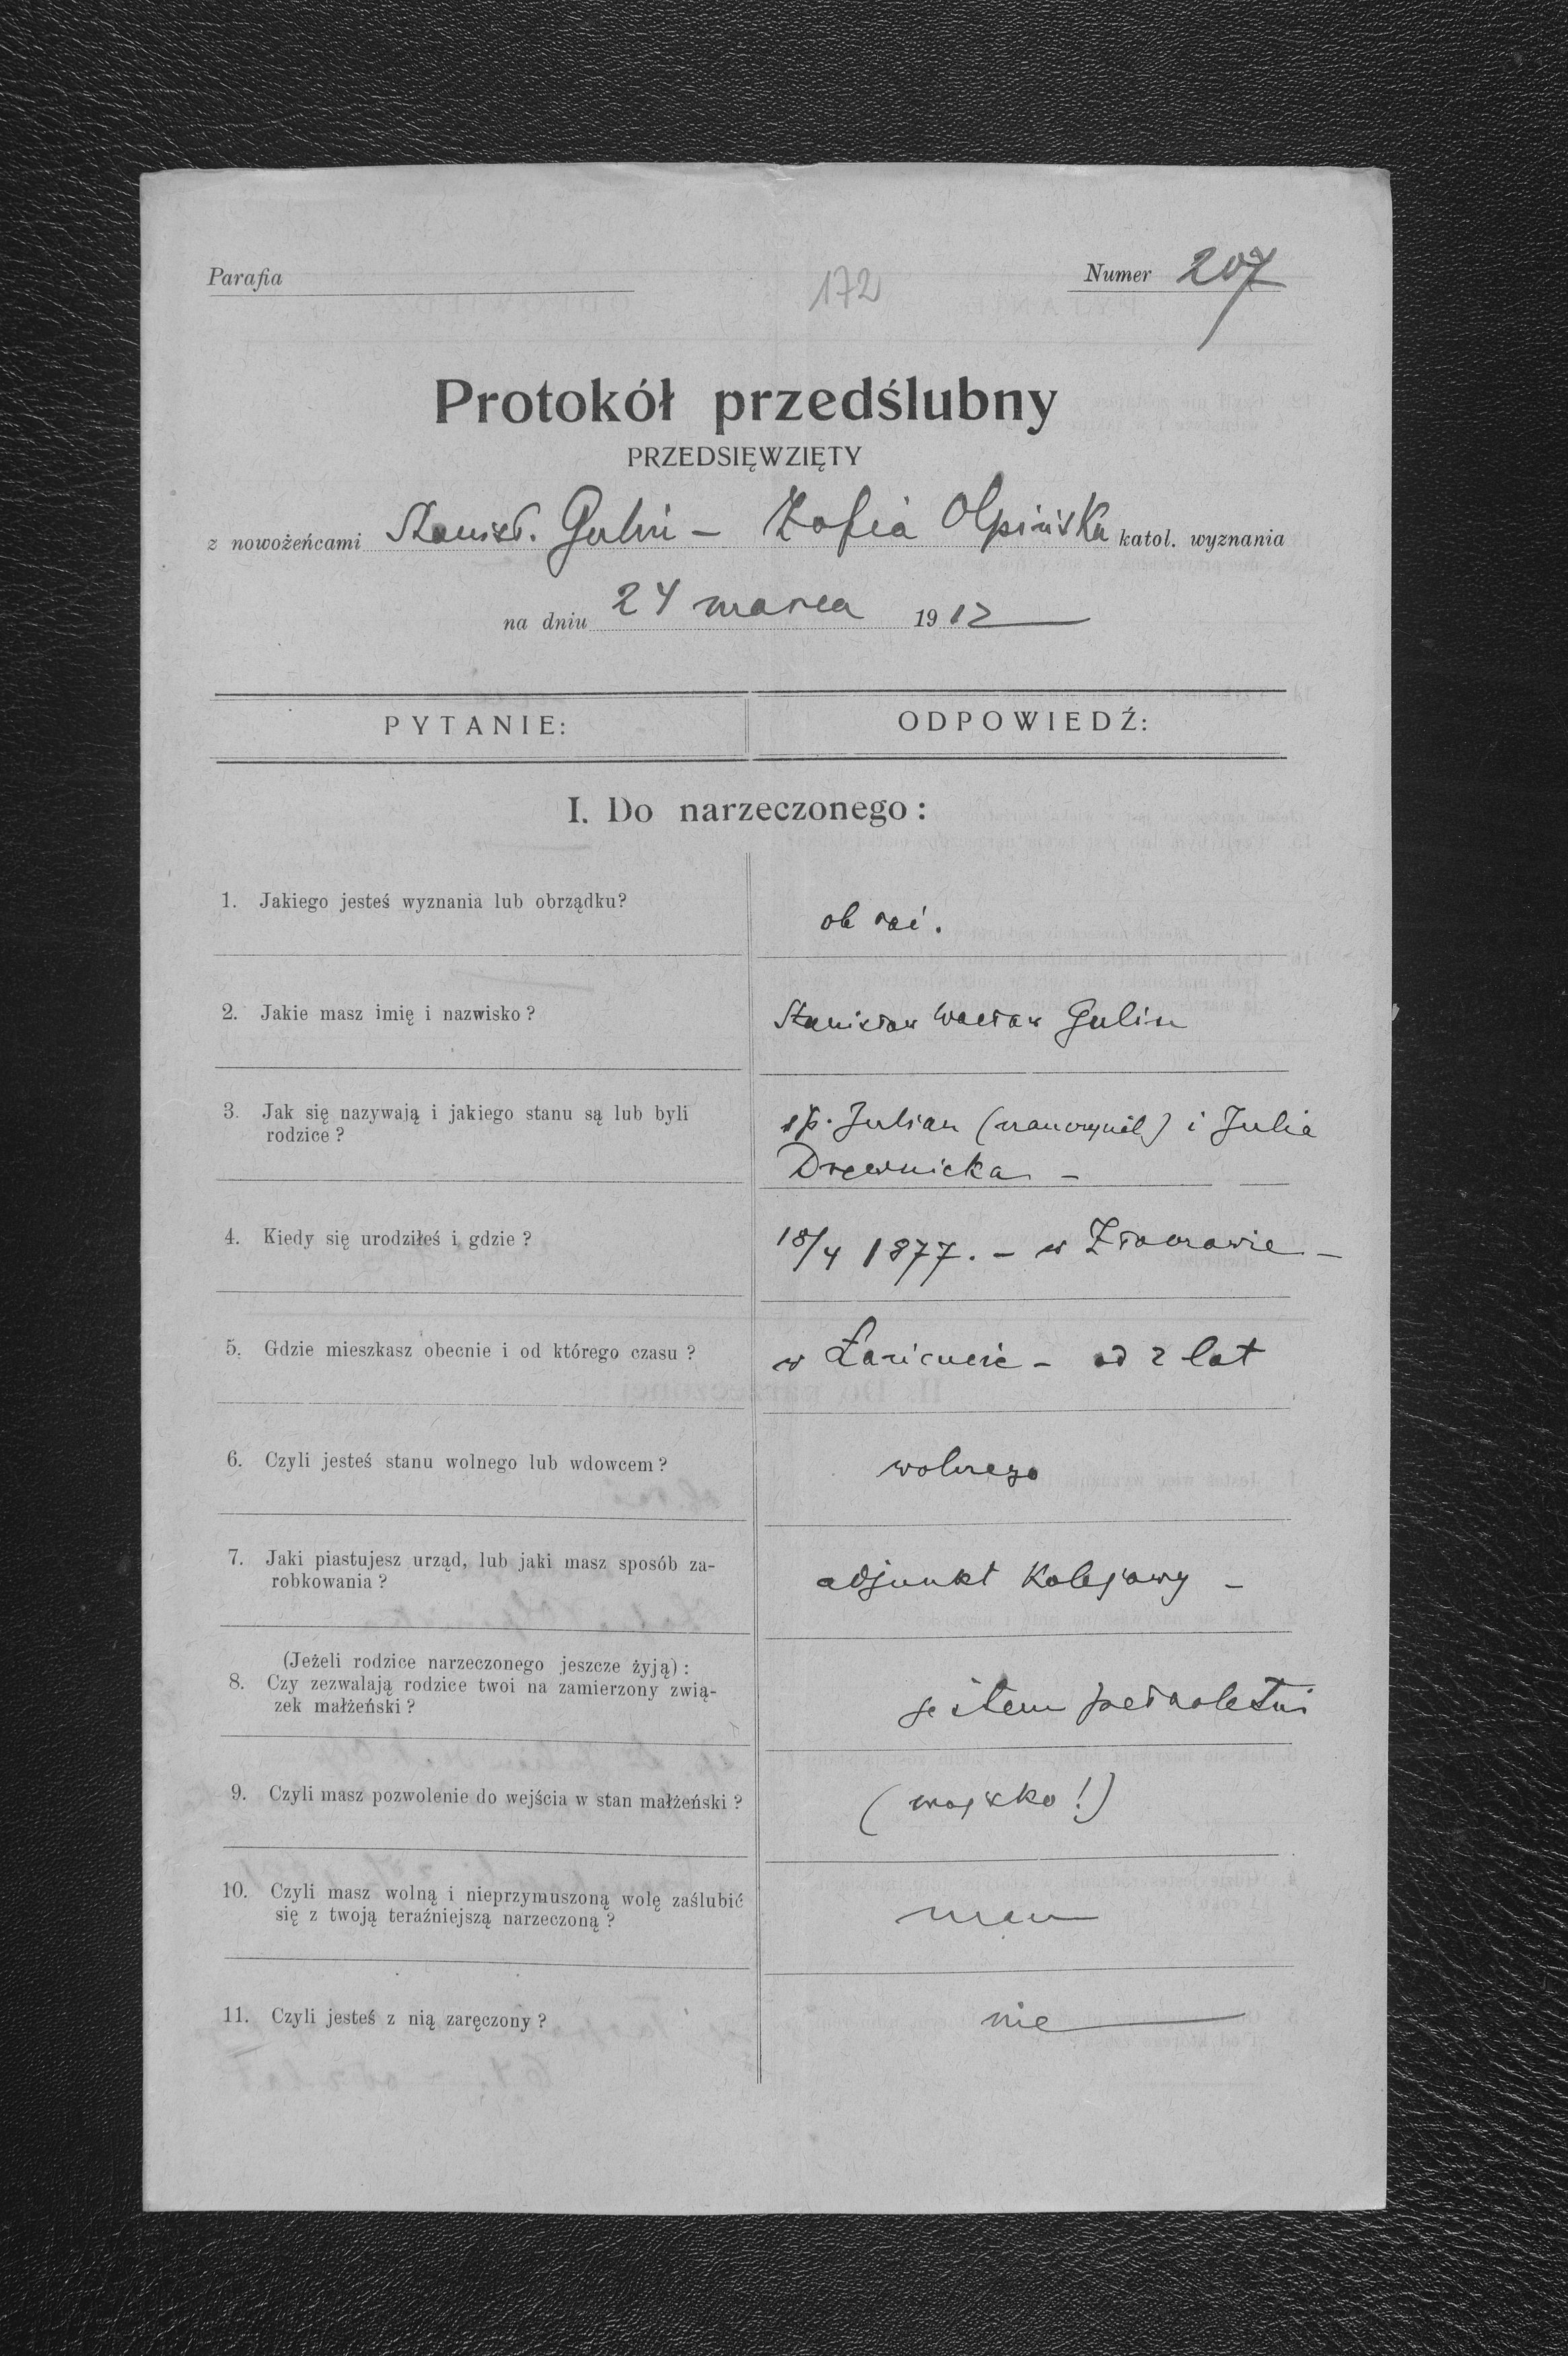 Parafia
172
Numer 207
Protokół przedślubny
PRZEDSIĘWZIĘTY
z nowożeńcami Stanisł. Gulin – Zofia Olpińska katol. wyznania
na dniu 24 marca 1912
PYTANIE:
ODPOWIEDŹ:
I. Do narzeczonego:
1. Jakiego jesteś wyznania lub obrządku?
ob łać.
2. Jakie masz imię i nazwisko?
Stanisław Wacław Gulin
3. Jak się nazywają i jakiego stanu są lub byli
rodzice?
śp. Julian (nauczyciel) i Julia
Drewnicka –
4. Kiedy się urodziłeś i gdzie?
18/4 1877. – w Złoczowie –
5. Gdzie mieszkasz obecnie i od którego czasu?
w Łańcucie – od 2 lat
6. Czyli jesteś stanu wolnego lub wdowcem?
wolnego
7. Jaki piastujesz urząd, lub jaki masz sposób za-
robkowania?
adjunkt kolejowy –
(Jeżeli rodzice narzeczonego jeszcze żyją):
8. Czy zezwalają rodzice twoi na zamierzony zwią-
zek małżeński?
jestem pełnoletni
9. Czyli masz pozwolenie do wejścia w stan małżeński?
(wojsko!)
10. Czyli masz wolną i nieprzymuszoną wolę zaślubić
się z twoją teraźniejszą narzeczoną?
mam
11. Czyli jesteś z nią zaręczony?
nie